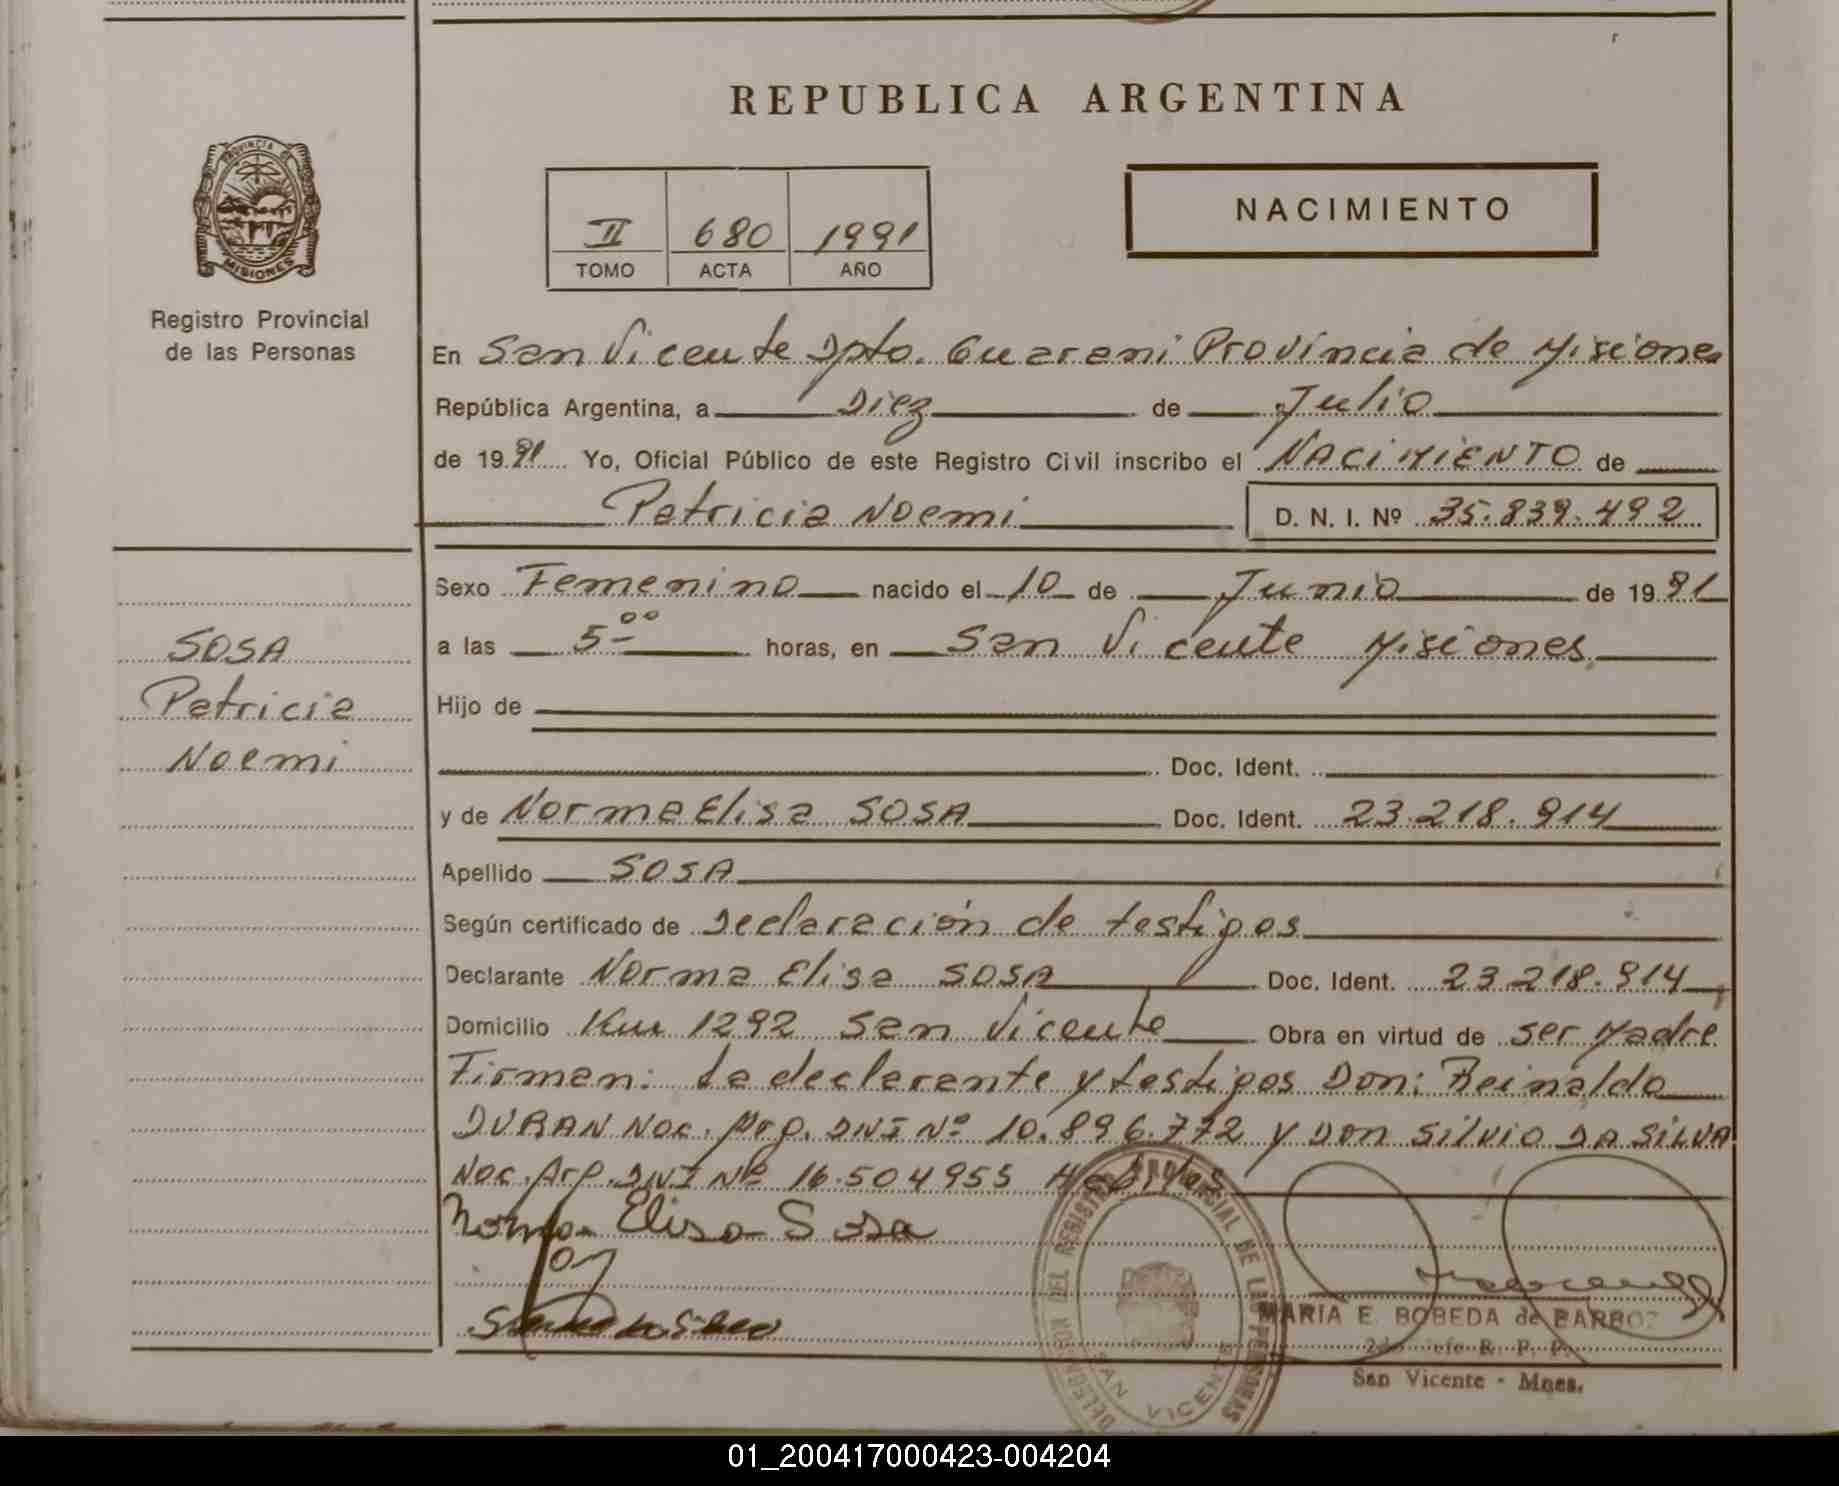 REPUBLICA ARGENTINA
PROVINCIA DE
MISIONES
Registro Provincial
de las Personas
II 680 1991
TOMO ACTA AÑO
NACIMIENTO
En San Vicente Dpto. Guarani Provincia de Misiones
República Argentina, a Diez de Julio
de 19 91 Yo, Oficial Público de este Registro Civil inscribo el NACIMIENTO de
Patricia Noemi D. N. I. Nº 35.839.492
Sexo Femenino nacido el 10 de Junio de 19 91
SOSA
Patricia
Noemi
a las 5 00 horas, en San Vicente Misiones
Hijo de
Doc. Ident.
y de Norma Elisa SOSA Doc. Ident. 23.218.914
Apellido SOSA
Según certificado de Declaración de testigos
Declarante Norma Elisa SOSA Doc. Ident. 23.218.914
Domicilio Km 1292 San Vicente Obra en virtud de ser Madre
Firman: La declarante y testigos Don: Reinaldo
DURAN Nac. Arg. DNI Nº 10.896.772 y Don Silvio DA SILVA
Nac. Arg. DNI Nº 16.504955 Habiles
Norma Elisa Sosa
DELEGACION DEL REGISTRO PROVINCIAL DE LAS PERSONAS
SAN VICENTE
MARIA E. BOBEDA de BARBOZ
R. P. P.
San Vicente - Mnes.
01_200417000423-004204